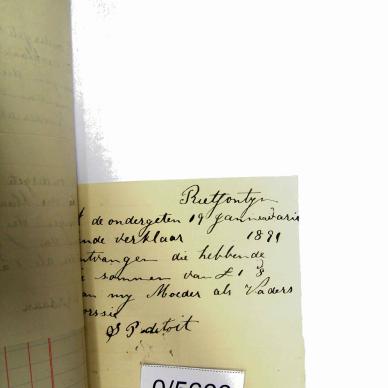 Rietfontyn
de ondergeten 19 Jannewarie
nde verklaar 1891
ntvangen die hebbende
sommen van £1
an my Moeder als Vaders
orssie
S P detoit